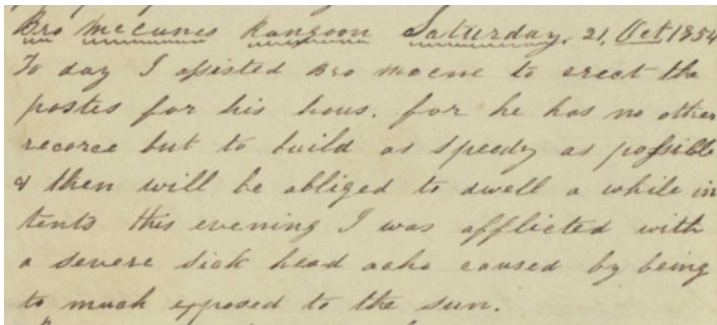 Bro McCunes Rangoon Saturday, 21, Oct 1854
To day I assisted Bro Mccne to erect the
postes for his hous. for he has no other
recorce but to build as speedy as possible
& then will be obliged to dwell a while in
tents this evening I was afflicted with
a severe sick head ache caused by being
to much exposed to the sun.